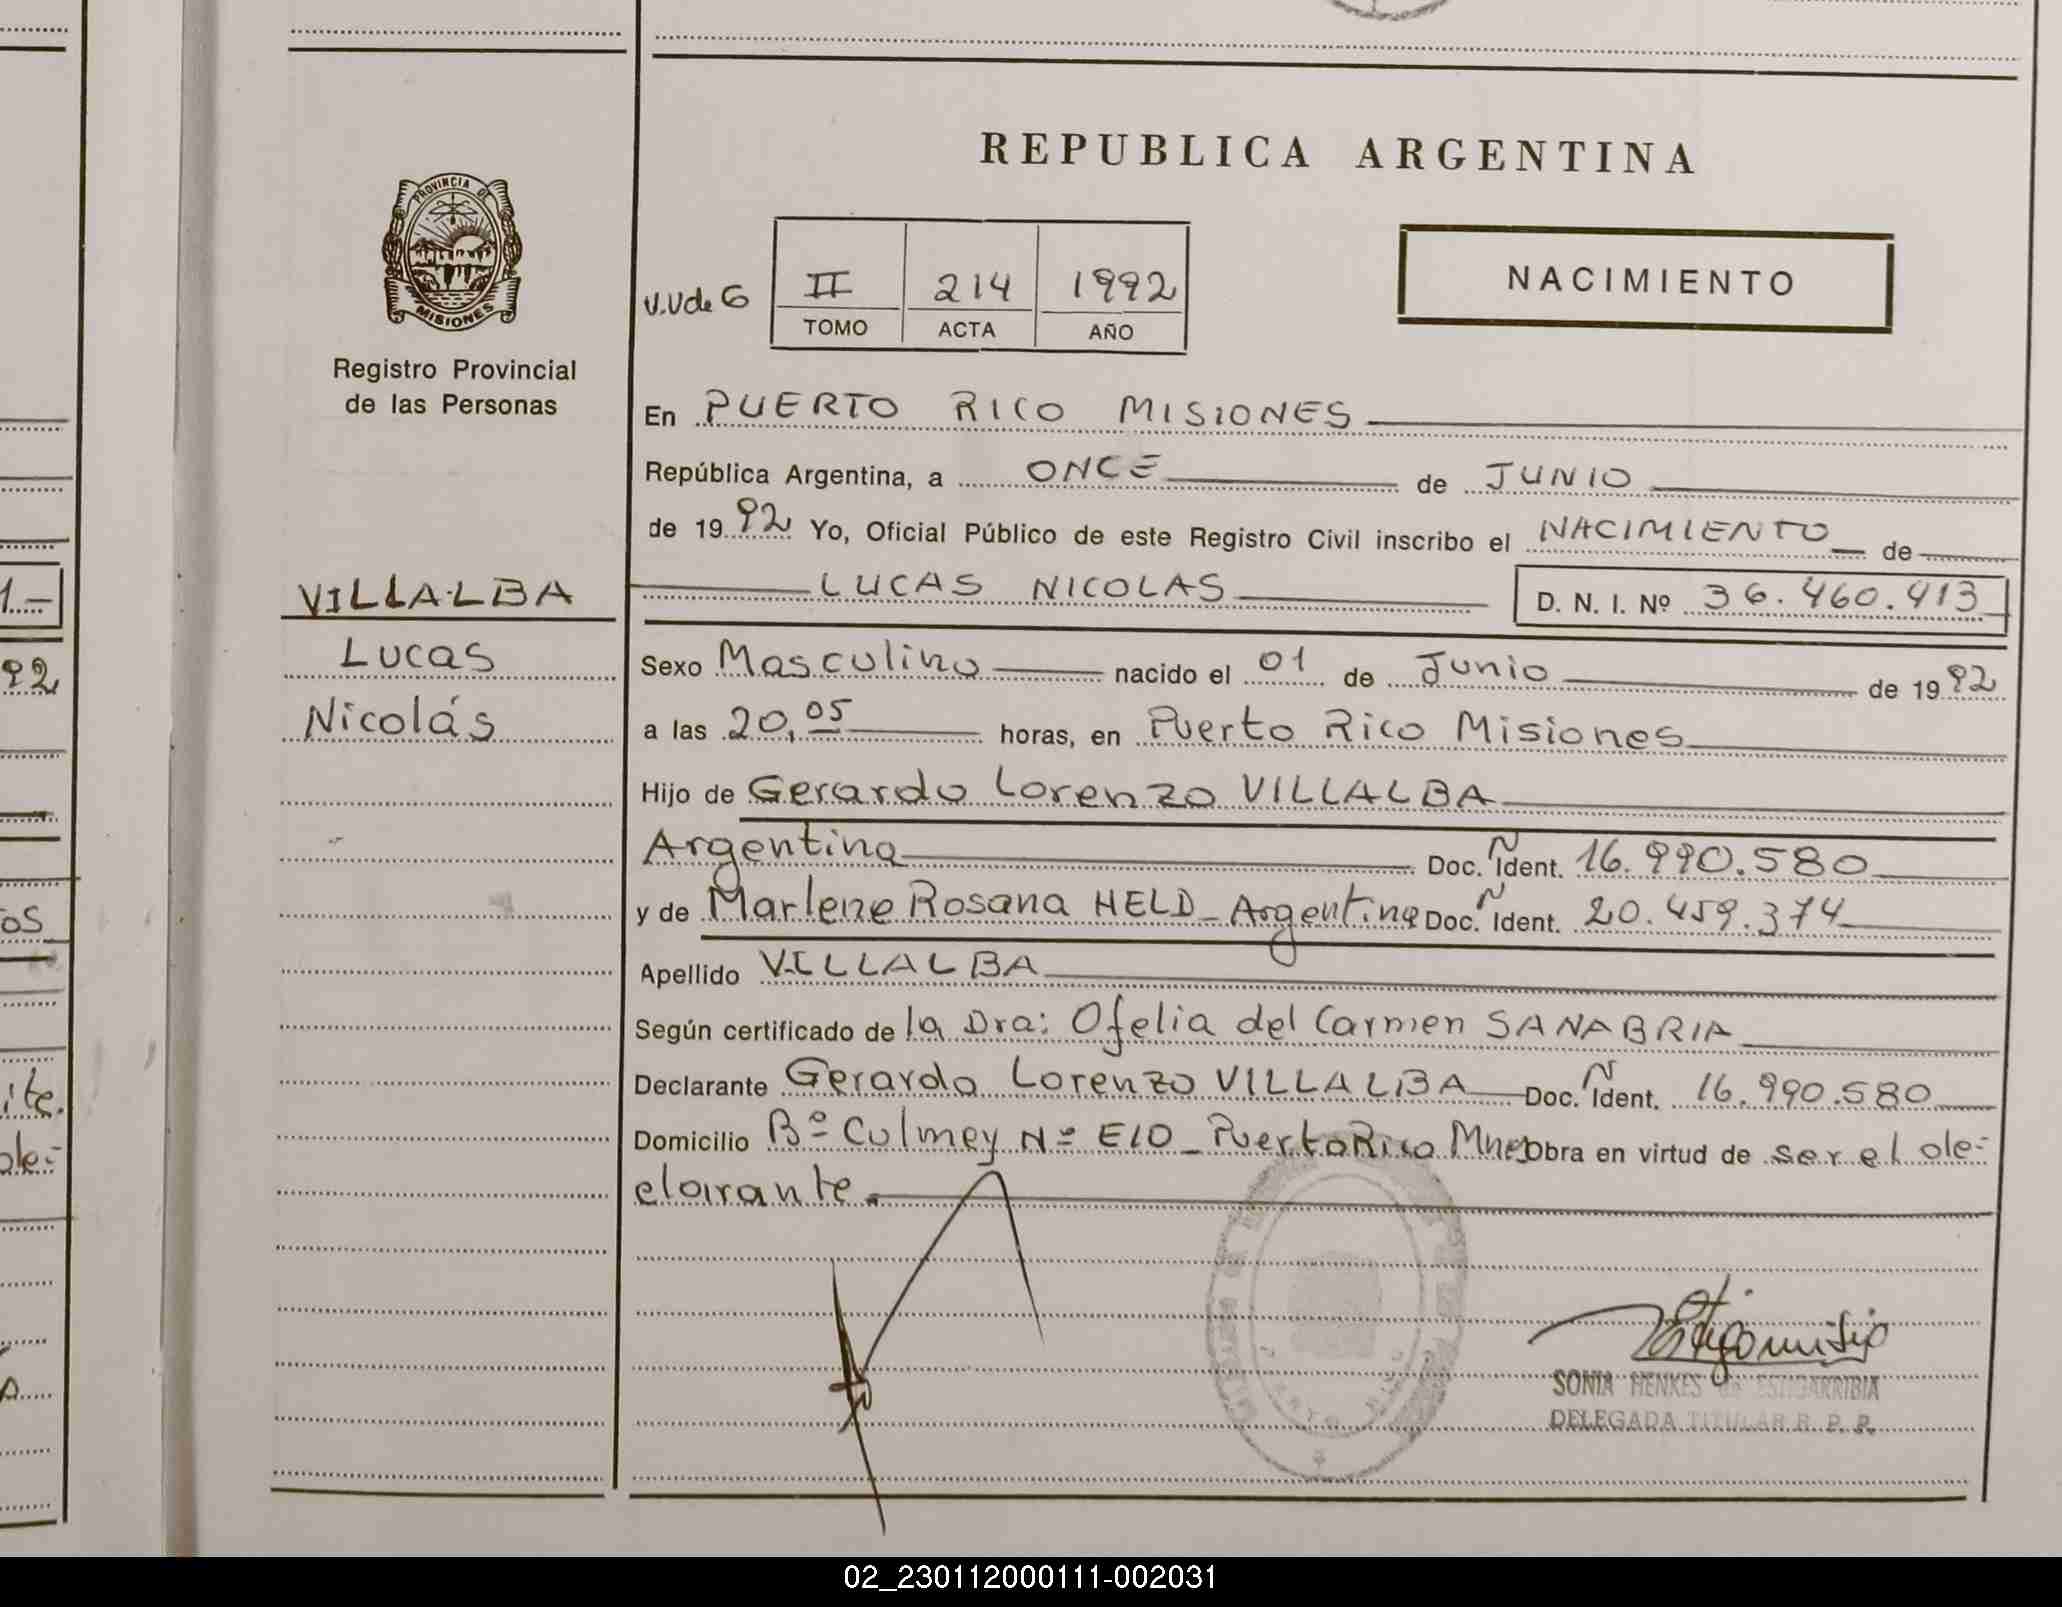 REPUBLICA ARGENTINA
PROVINCIA DE
MISIONES
Registro Provincial
de las Personas
V.V de G
II 214 1992
TOMO ACTA AÑO
NACIMIENTO
En PUERTO RICO MISIONES
República Argentina, a ONCE de JUNIO
de 1992 Yo, Oficial Público de este Registro Civil inscribo el NACIMIENTO de
LUCAS NICOLAS D. N. I. Nº 36.460.413
VILLALBA
Lucas
Nicolás
Sexo Masculino nacido el 01 de Junio de 1992
a las 20,05 horas, en Puerto Rico Misiones
Hijo de Gerardo Lorenzo VILLALBA
Argentina Doc. N Ident. 16.990.580
y de Marlene Rosana HELD - Argentina Doc. N Ident. 20.459.374
Apellido VILLALBA
Según certificado de la Dra: Ofelia del Carmen SANABRIA
Declarante Gerardo Lorenzo VILLALBA Doc. N Ident. 16.990.580
Domicilio Bº Culmey Nº E10 - Puerto Rico Mnes Obra en virtud de ser el de-
clarante.
SONIA HENKES de ESTIGARRIBIA
DELEGADA TITULAR R. P. P.
1.-
92
os
ite.
de-
02_230112000111-002031